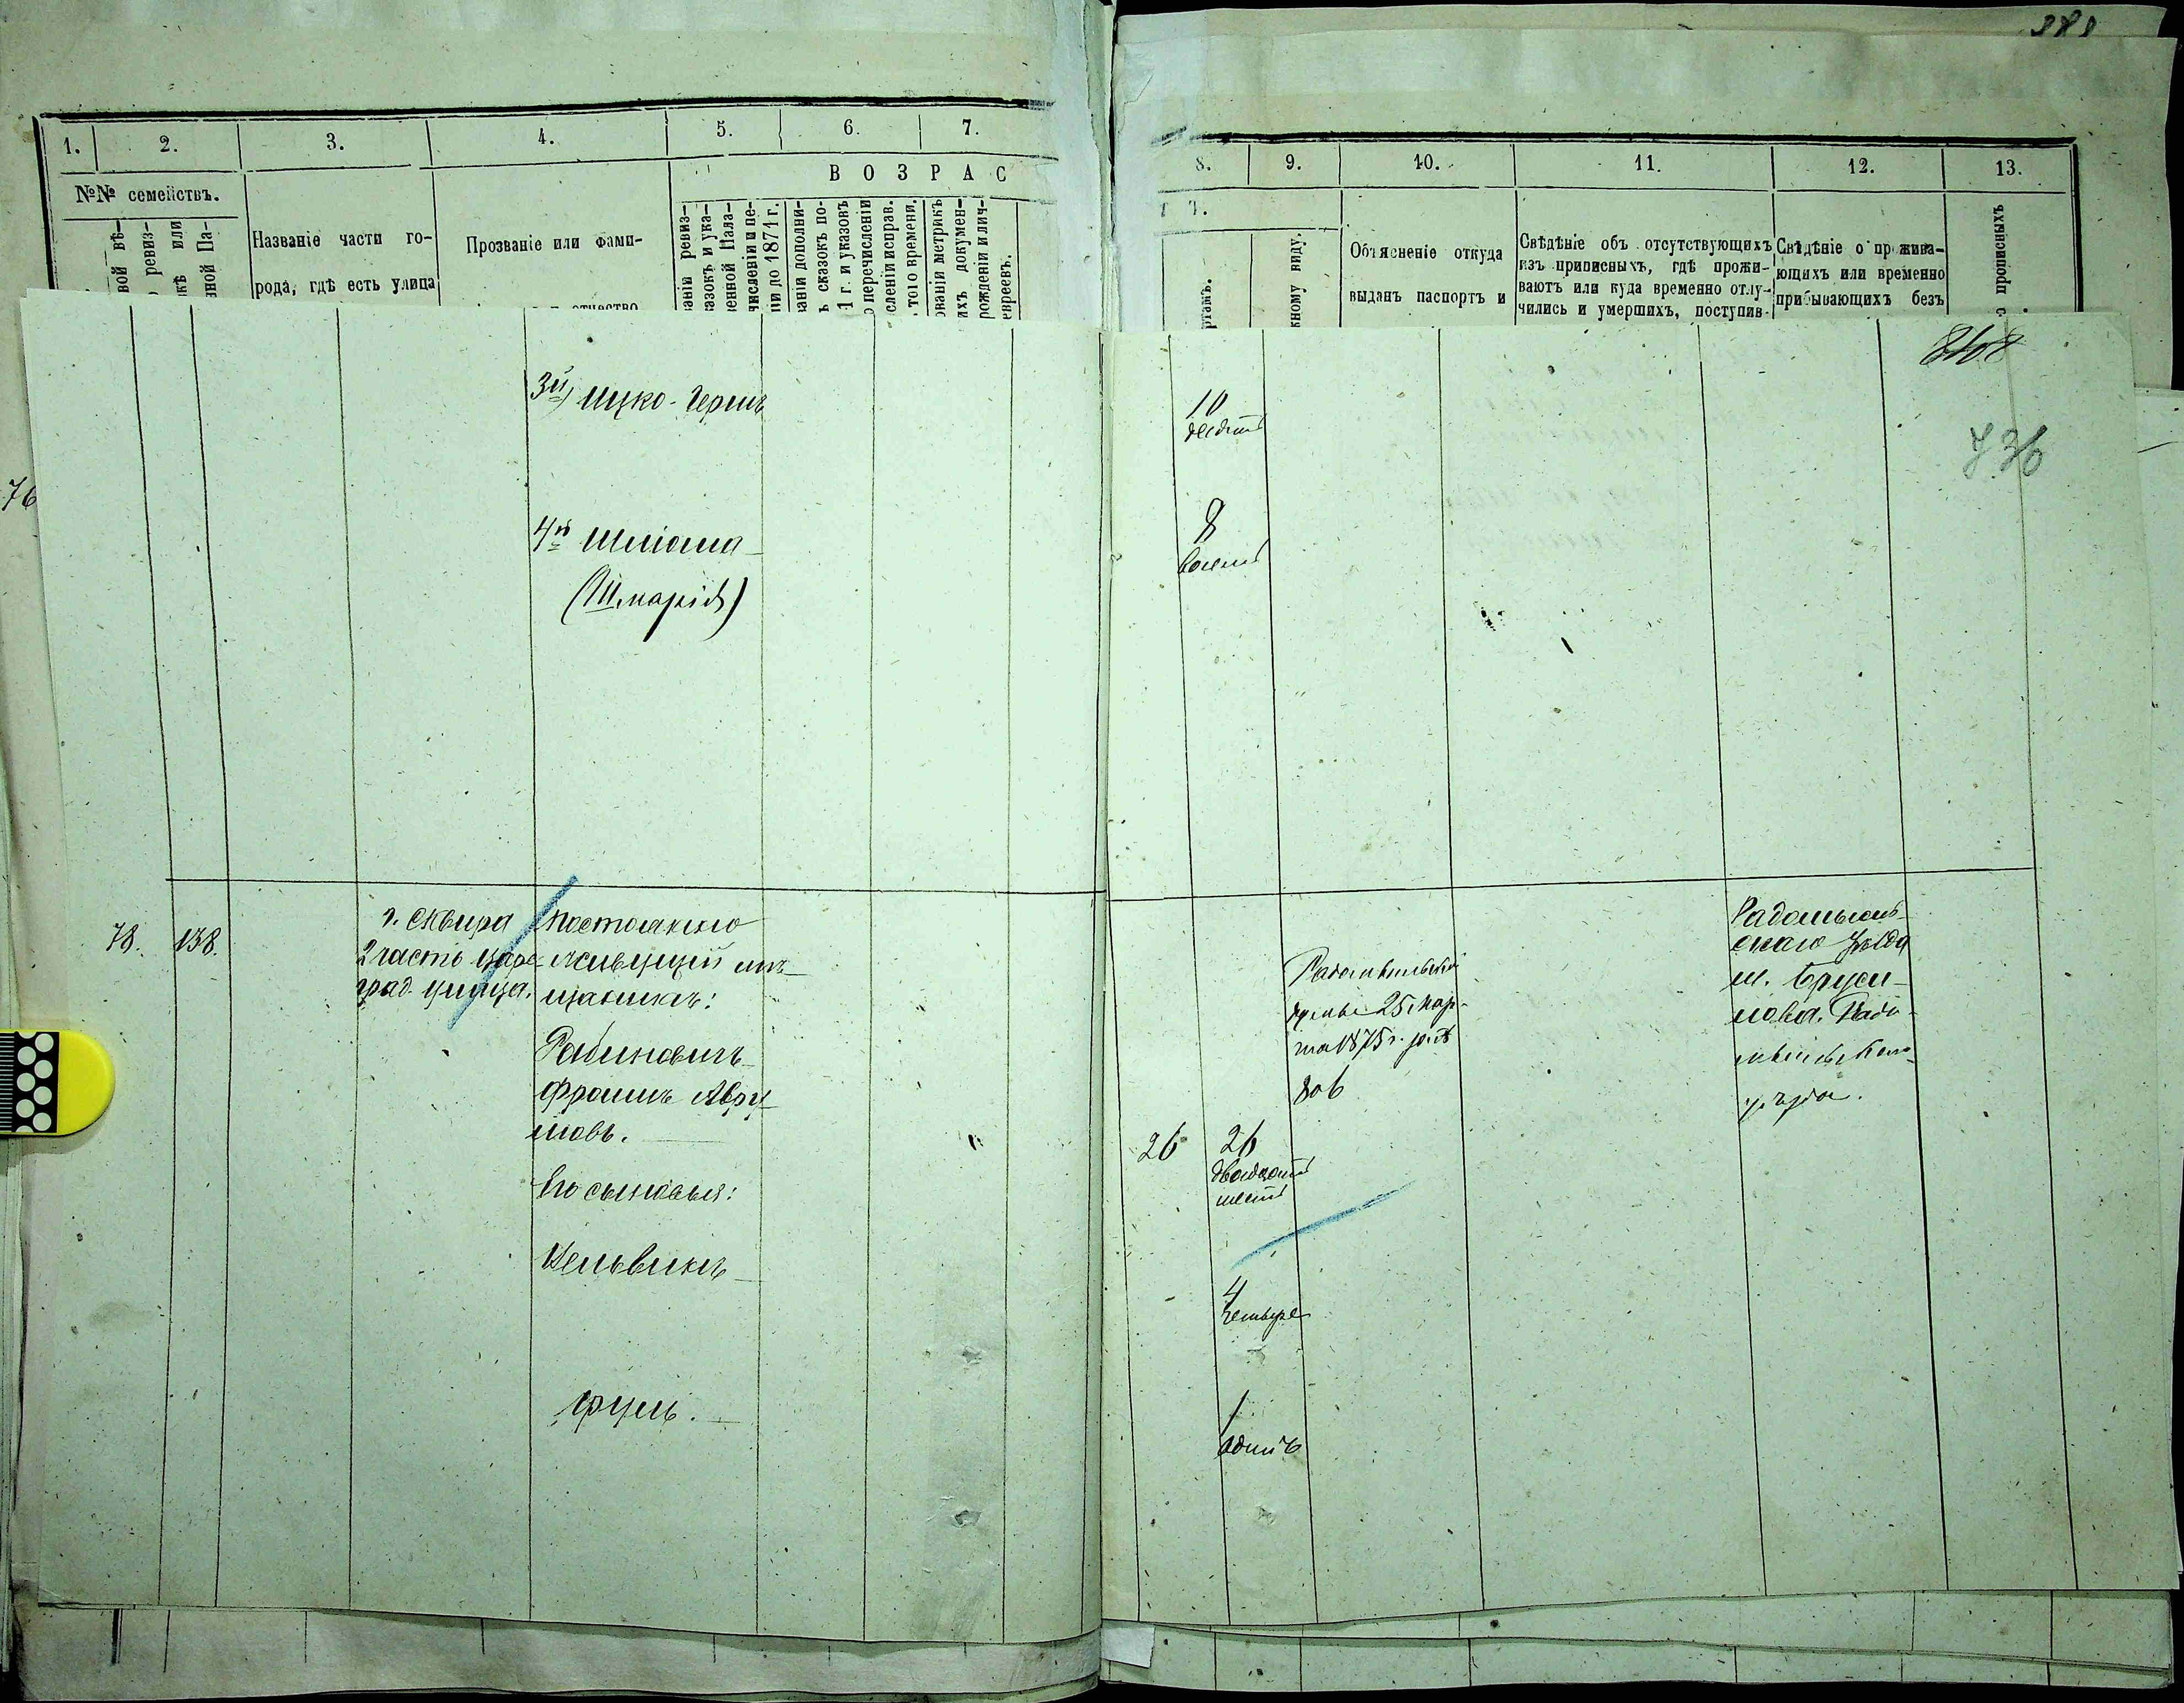 388
1. 2. 3. 4. 5. 6. 7.
8. 9. 10. 11. 12. 13.
В О З Р А С
Т Ъ.
№№ семействъ.
вой вѣ-
ревиз-
или
нной Па-
Названіе части го-
рода, гдѣ есть улица
Прозваніе или фами-
отчество
ваніи ревиз-
азокъ и ука-
венной Пала-
численіи и пе-
ніи до 1871 г.
ваніи дополни-
ъ сказокъ по-
1 г. и указовъ
о перечисленіи
сленіи исправ.
того времени.
ованіи метрикъ
ихъ докумен-
рожденіи и лич-
евреевъ.
ртамъ.
жному виду.
Объясненіе откуда
выданъ паспортъ и
Свѣдѣніе объ отсутствующихъ
изъ приписныхъ, гдѣ прожи-
ваютъ или куда временно отлу-
чились и умершихъ, поступив-
Свѣдѣніе о прожива-
ющихъ или временно
прибывающихъ безъ
прописныхъ
736
76
3й) Ицко-Гершъ
10
десять
4й
(Шмарія)
8
восемь
78. 138.
г. Сквира
2 часть Царе-
град. улица.
Постоянно
живущій мѣ-
щанинъ:
Рабиновичъ
Фроимъ Авру-
мовъ.
Его сыновья:
Вельвикъ
Фуль.
26 26
двадцать
шесть
4
четыре
1
одинъ
Радомысльской
думы 25 мар-
та 1875 г. за №
806
Радомысль-
скаго уѣзда
м. Бруси-
лова. Радо-